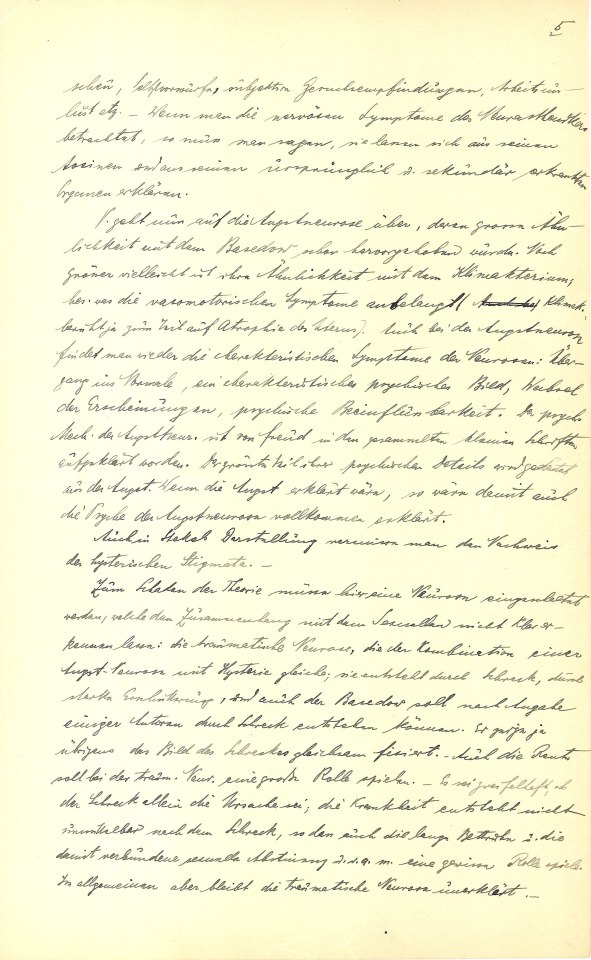 5
schen, Selbstvorwürfe, subjektive Geruchsempfindungen, Arbeitsun-
lust etz. – Wenn man die nervösen Symptome des Neurasthenikers
betrachtet, so muss man sagen, sie lassen sich aus seinen
Toxinen und aus seinen ursprünglich u. sekundär erkrankten
Organen erklären.
V. geht nun auf die Angstneurose über, deren grosse Ähn-
lichkeit mit dem Basedow schon hervorgehoben wurde. Noch
grösser vielleicht ist ihre Ähnlichkeit mit dem Klimakterium,
bes. was die vasomotorischen Symptome anbelangt ( Klimak.
beruht ja zum Teil auf Atrophie des Uterus). Auch bei der Angstneurose
findet man wieder die charakteristischen Symptome der Neurosen: Über-
gang ins Normale, ein charakteristisches psychisches Bild, Wechsel
der Erscheinungen, psychische Beeinflussbarkeit. Der psych.
Mech. der Angstneur. ist von Freud in den gesammelten kleinen Schriften
aufgeklärt worden. Der grösste Teil ihrer psychischen Details wird gedeutet
aus der Angst. Wenn die Angst erklärt wäre, so wäre damit auch
die Psyche der Angstneurose vollkommen erklärt.
Auch in Darstellung vermisse man den Nachweis
der hysterischen Stigmata. –
Zum Schaden der Theorie müsse hier eine Neurose eingeschaltet
werden, welche den Zusammenhang mit dem Sexuellen nicht klar er-
kennen lasse: die traumatische Neurose, die der Kombination einer
Angst-Neurose mit Hysterie gleiche; sie entsteht durch Schreck, durch
starke Erschütterung, und auch der Basedow soll nach Angabe
einiger Autoren durch Schreck entstehen können. Er zeige ja
übrigens das Bild des Schreckes gleichsam fixiert. – Auch die Rente
soll bei der traum. Neur. eine grosse Rolle spielen. – Es sei zweifelhaft, ob
der Schreck allein die Ursache sei; die Krankheit entsteht nicht
unmittelbar nach dem Schreck, so dass auch die lange Bettruhe u. die
damit verbundene sexuelle Abstinenz u. d. a. m. eine gewisse Rolle spiele.
Im allgemeinen aber bleibt die traumatische Neurose unerklärt. –